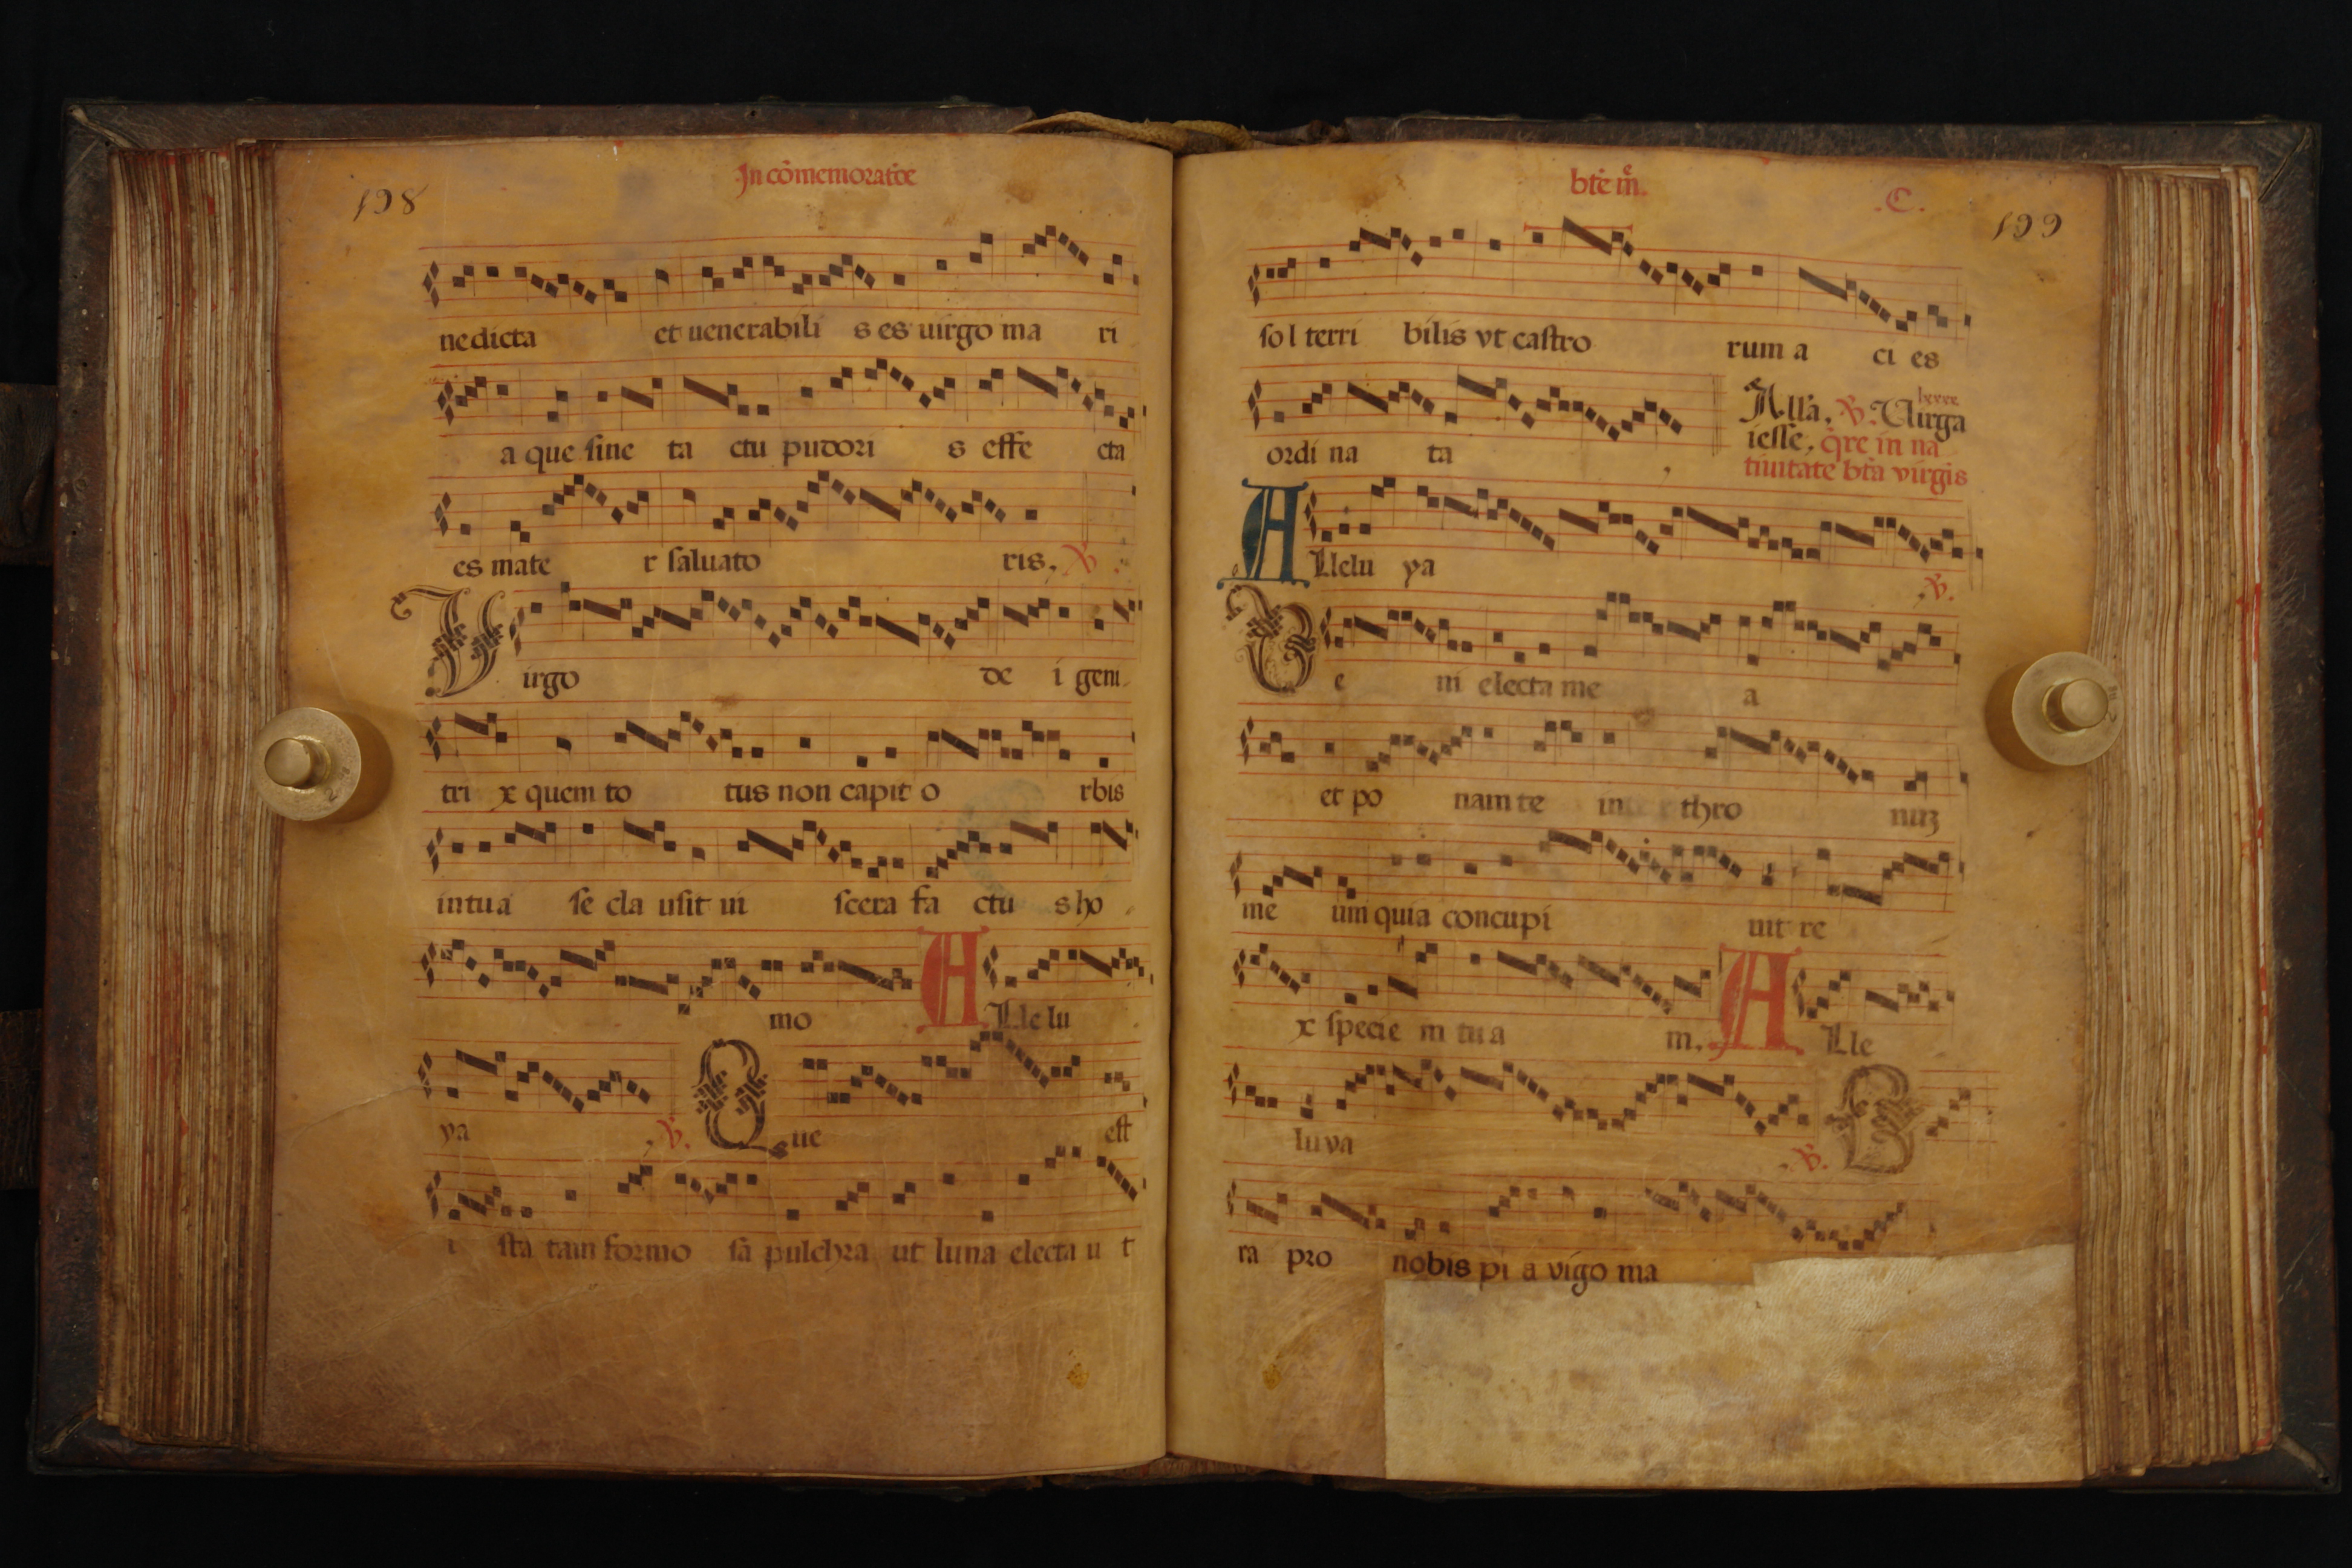 198
In cōmemoratōe
nedicta et uenerabili s es uirgo ma ri
a que sine ta ctu pudori s effe cta
es mate r saluato ris. ℣.
Virgo de i geni
tri x quem to tus non capit o rbis
in tua se cla usit ui scera fa ctu s ho
mo ALle lu
ya ℣. Que est
i sta tam formo sa pulchra ut luna electa u t
bt̄e m̄. .C. 199
sol terri bilis vt castro rum a ci es
ordi na ta Alla. ℣. Uirga
iesse. q̄re in na
tiuitate bt̄a virgis
ALlelu ya ℣.
Ue ni electa me a
et po nam te in thro nuꝫ
me um quia concupi uit re
x specie m tu a m. ALle
lu ya ℣. O
ra pro nobis pi a vigo ma